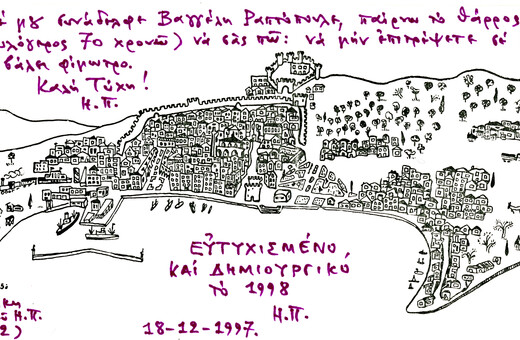 μου συνάδελφε Βαγγέλη Ραπτόπουλε, παίρνω το θάρρος
70 χρονῶ) νὰ σᾶς πῶ: νὰ μὴν ἐπιτρέψετε σὲ
βάλει φίμωτρο.
Καλή Τύχη!
Η.Π.
ΕΥΤΥΧΙΣΜΕΝΟ
ΚΑΙ ΔΗΜΙΟΥΡΓΙΚΟ
τὸ 1998
Η.Π.
18-12-1997.
Η.Π.
2)